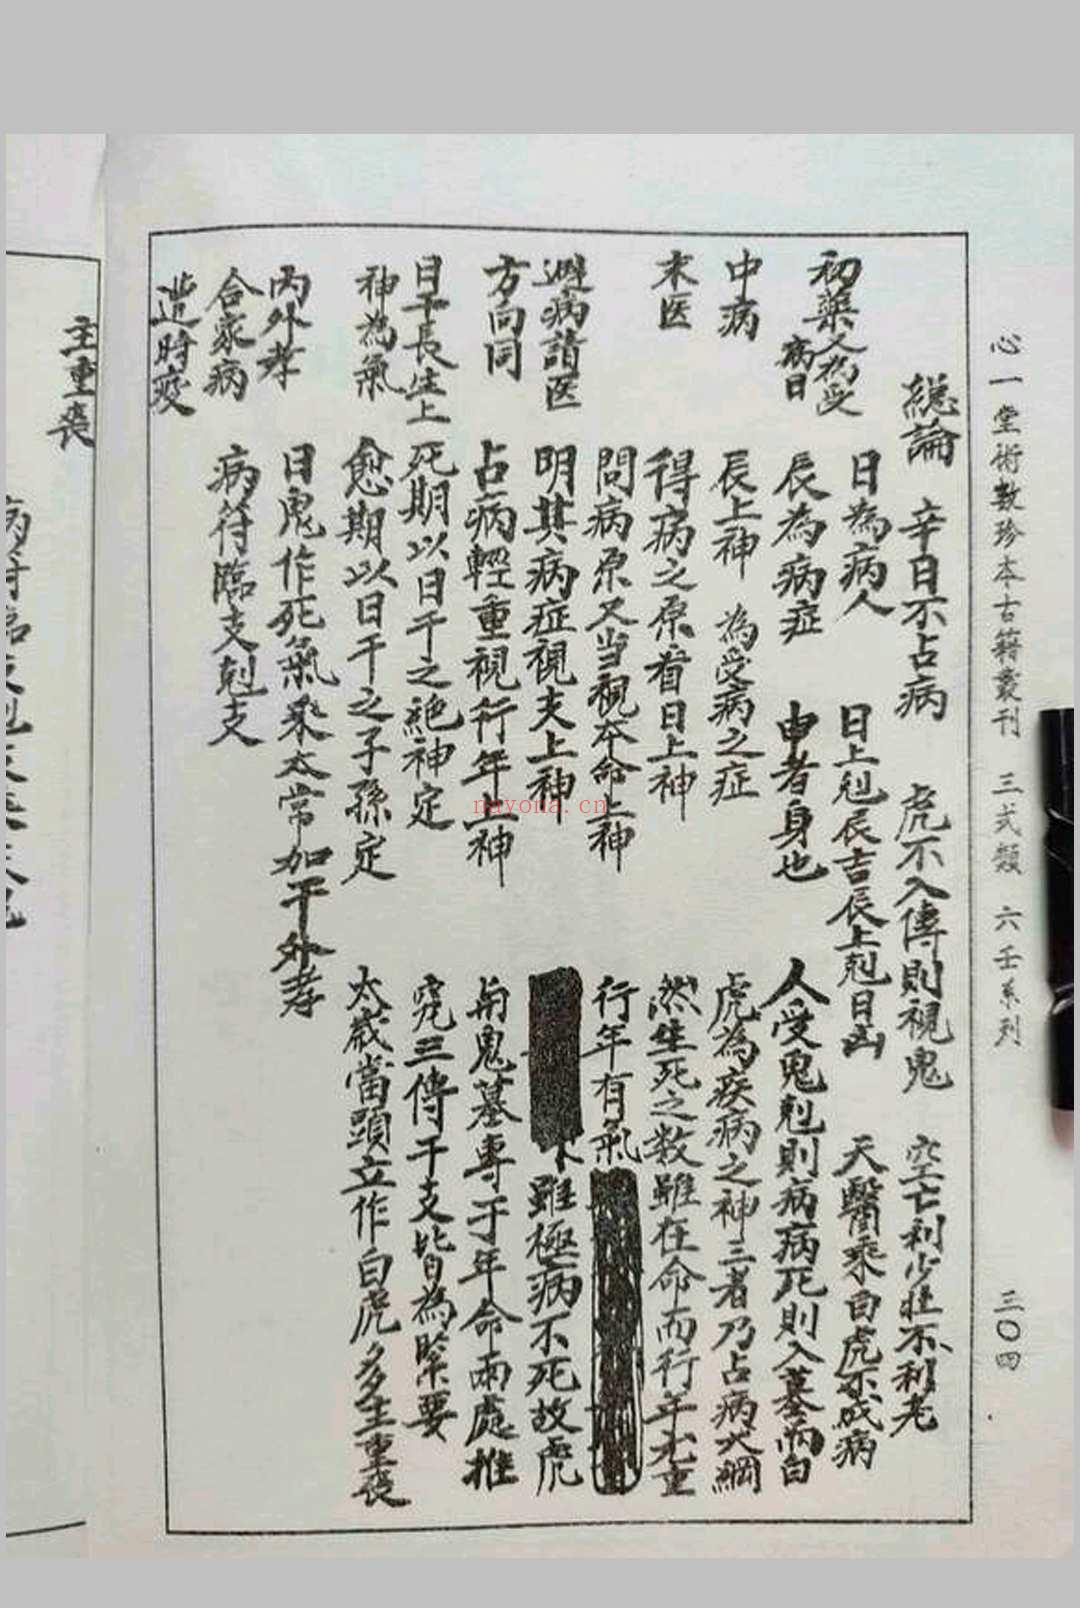 心一堂術數珍本古籍叢刊 三式類 六壬系列
三〇四
總論 辛日不占病 虎不入傳則視鬼 空亡利少壯不利老
日為病人 日上剋辰吉辰上剋日凶 天醫乘白虎不成病
初藥又為受病日
辰為病症 申者身也 人受鬼剋則病病死則入墓而白
中病
辰上神 為受病之症 虎為疾病之神三者乃占病大綱
末医
得病之原看日上神 然生死之数雖在命而行年尤重
問病原又当視本命上神 行年有氣
避病請医
明其病症視支上神 雖極病不死故虎
方向同
占病輕重視行年上神 與鬼墓專于年命兩處推
日干長生上
死期以日干之絕神定 究三傳干支皆為緊要
神為氣
愈期以日干之子孫定 太歲當頭立作白虎多主重喪
內外孝
日鬼作死氣乘太常加干外孝
合家病
病符臨支剋支
造時疫
主重喪